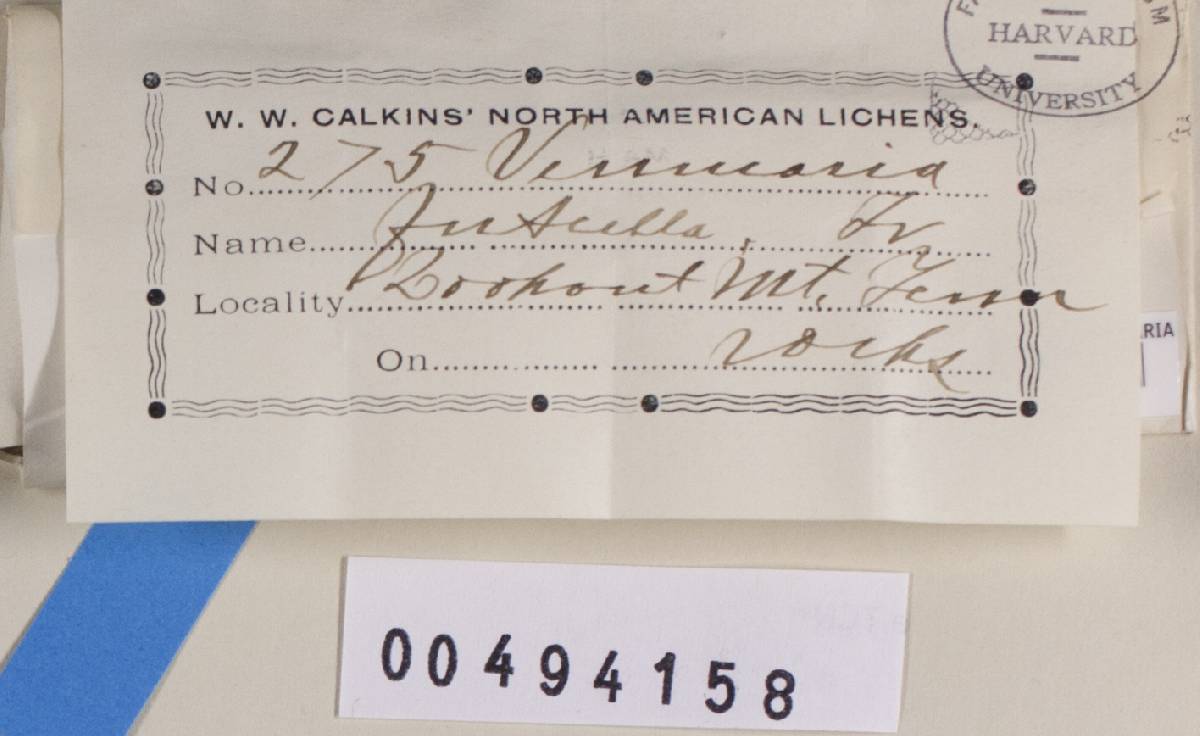 HARVARD
UNIVERSITY
W. W. CALKINS' NORTH AMERICAN LICHENS.
No. 275 Verrucaria
Name
Locality Lookout Mt. Tenn
On rocks
RIA
00494158